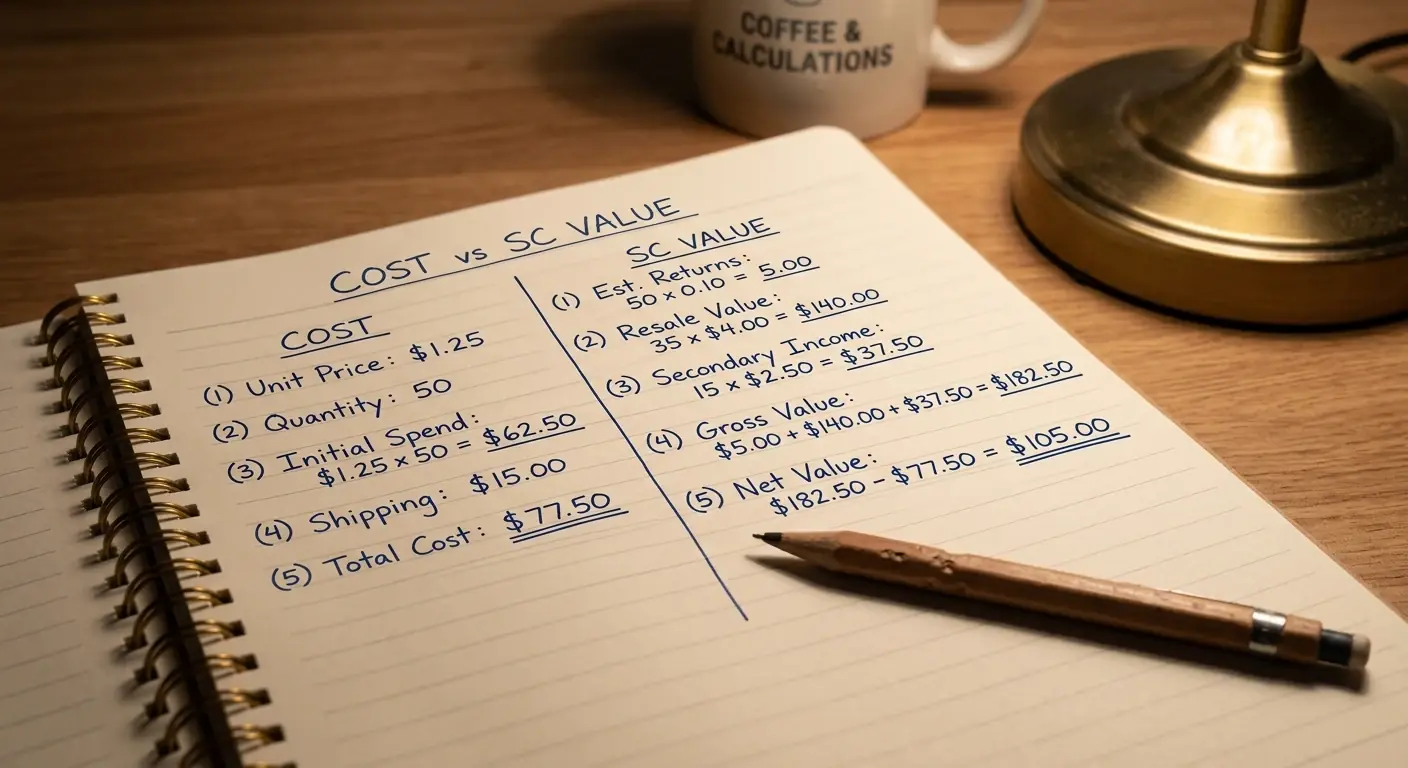 COFFEE &
CALCULATIONS
COST vs SC VALUE
COST
(1) Unit Price: $1.25
(2) Quantity: 50
(3) Initial Spend:
$1.25 x 50 = $62.50
(4) Shipping: $15.00
(5) Total Cost: $77.50
SC VALUE
(1) Est. Returns:
50 x 0.10 = 5.00
(2) Resale Value:
35 x $4.00 = $140.00
(3) Secondary Income:
15 x $2.50 = $37.50
(4) Gross Value:
$5.00 + $140.00 + $37.50 = $182.50
(5) Net Value:
$182.50 - $77.50 = $105.00